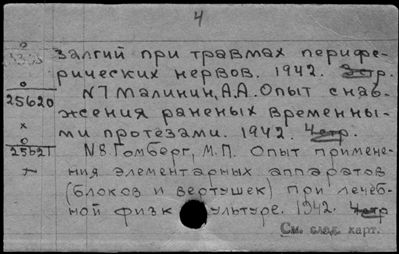 4
залгий при травмах перифе-
рических нервов. 1942. 3стр.
25620
N7 Малинин, А.А. Опыт снаб-
жения раненых временны-
ми протезами. 1942. 4стр.
25621
N8. Гомберг, М.П. Опыт примене-
ния элементарных аппаратов
(блоков и вертушек) при лечеб-
ной физкультуре. 1942. 4стр
См. след. карт.